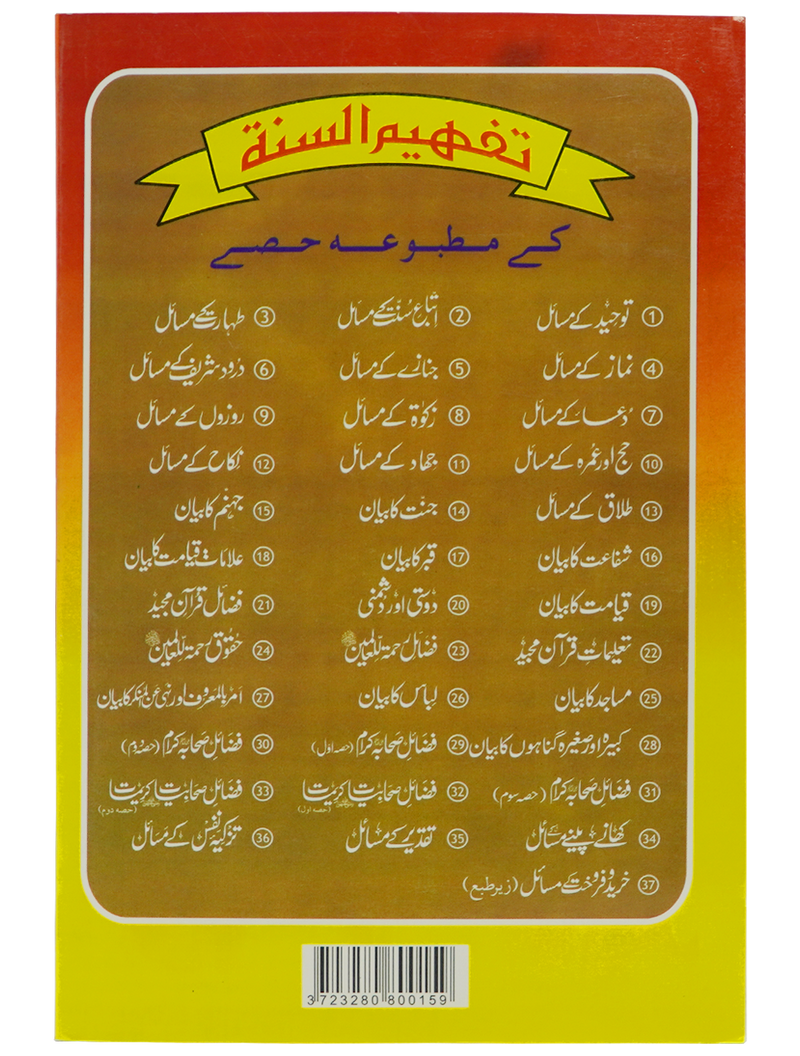 تفہیم السنۃ
کے مطبوعہ حصے
① توحید کے مسائل ② اتباع سُنّت کے مسائل ③ طہارت کے مسائل
④ نماز کے مسائل ⑤ جنازے کے مسائل ⑥ درود شریف کے مسائل
⑦ دُعا کے مسائل ⑧ زکوٰۃ کے مسائل ⑨ روزوں کے مسائل
⑩ حج اور عُمرہ کے مسائل ⑪ جہاد کے مسائل ⑫ نکاح کے مسائل
⑬ طلاق کے مسائل ⑭ جنّت کا بیان ⑮ جہنّم کا بیان
⑯ شفاعت کا بیان ⑰ قبر کا بیان ⑱ علاماتِ قیامت کا بیان
⑲ قیامت کا بیان ⑳ دوستی اور دشمنی ㉑ فضائلِ قرآن مجید
㉒ تعلیماتِ قرآن مجید ㉓ فضائلِ رحمۃ للعالمین ㉔ حقوقِ رحمۃ للعالمین
㉕ مساجد کا بیان ㉖ لباس کا بیان ㉗ امر بالمعروف اور نہی عن المنکر کا بیان
㉘ کبیرہ اور صغیرہ گناہوں کا بیان ㉙ فضائلِ صحابہ کرام (حصہ اول) ㉚ فضائلِ صحابہ کرام (حصہ دوم)
㉛ فضائلِ صحابہ کرام (حصہ سوم) ㉜ فضائلِ صحابیات کریمات (حصہ اول) ㉝ فضائلِ صحابیات کریمات (حصہ دوم)
㉞ کھانے پینے کے مسائل ㉟ تقدیر کے مسائل ㊱ تزکیہ نفس کے مسائل
㊲ خرید و فروخت کے مسائل (زیر طبع)
3723280 800159